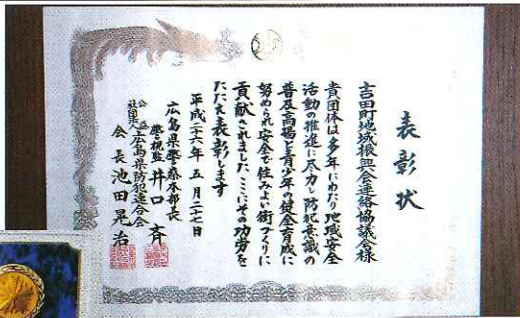 表彰状
吉田町地域振興会連絡協議会様
貴団体は多年にわたり地域安全
活動の推進に尽力し防犯意識の
普及高揚と青少年の健全育成に
努められ安全で住みよい街づくりに
貢献されました ここにその功労を
たたえ表彰します
平成二十六年五月二十七日
広島県警察本部長
警視監 井口 斉
公益社団法人広島県防犯連合会
会長 池田晃治